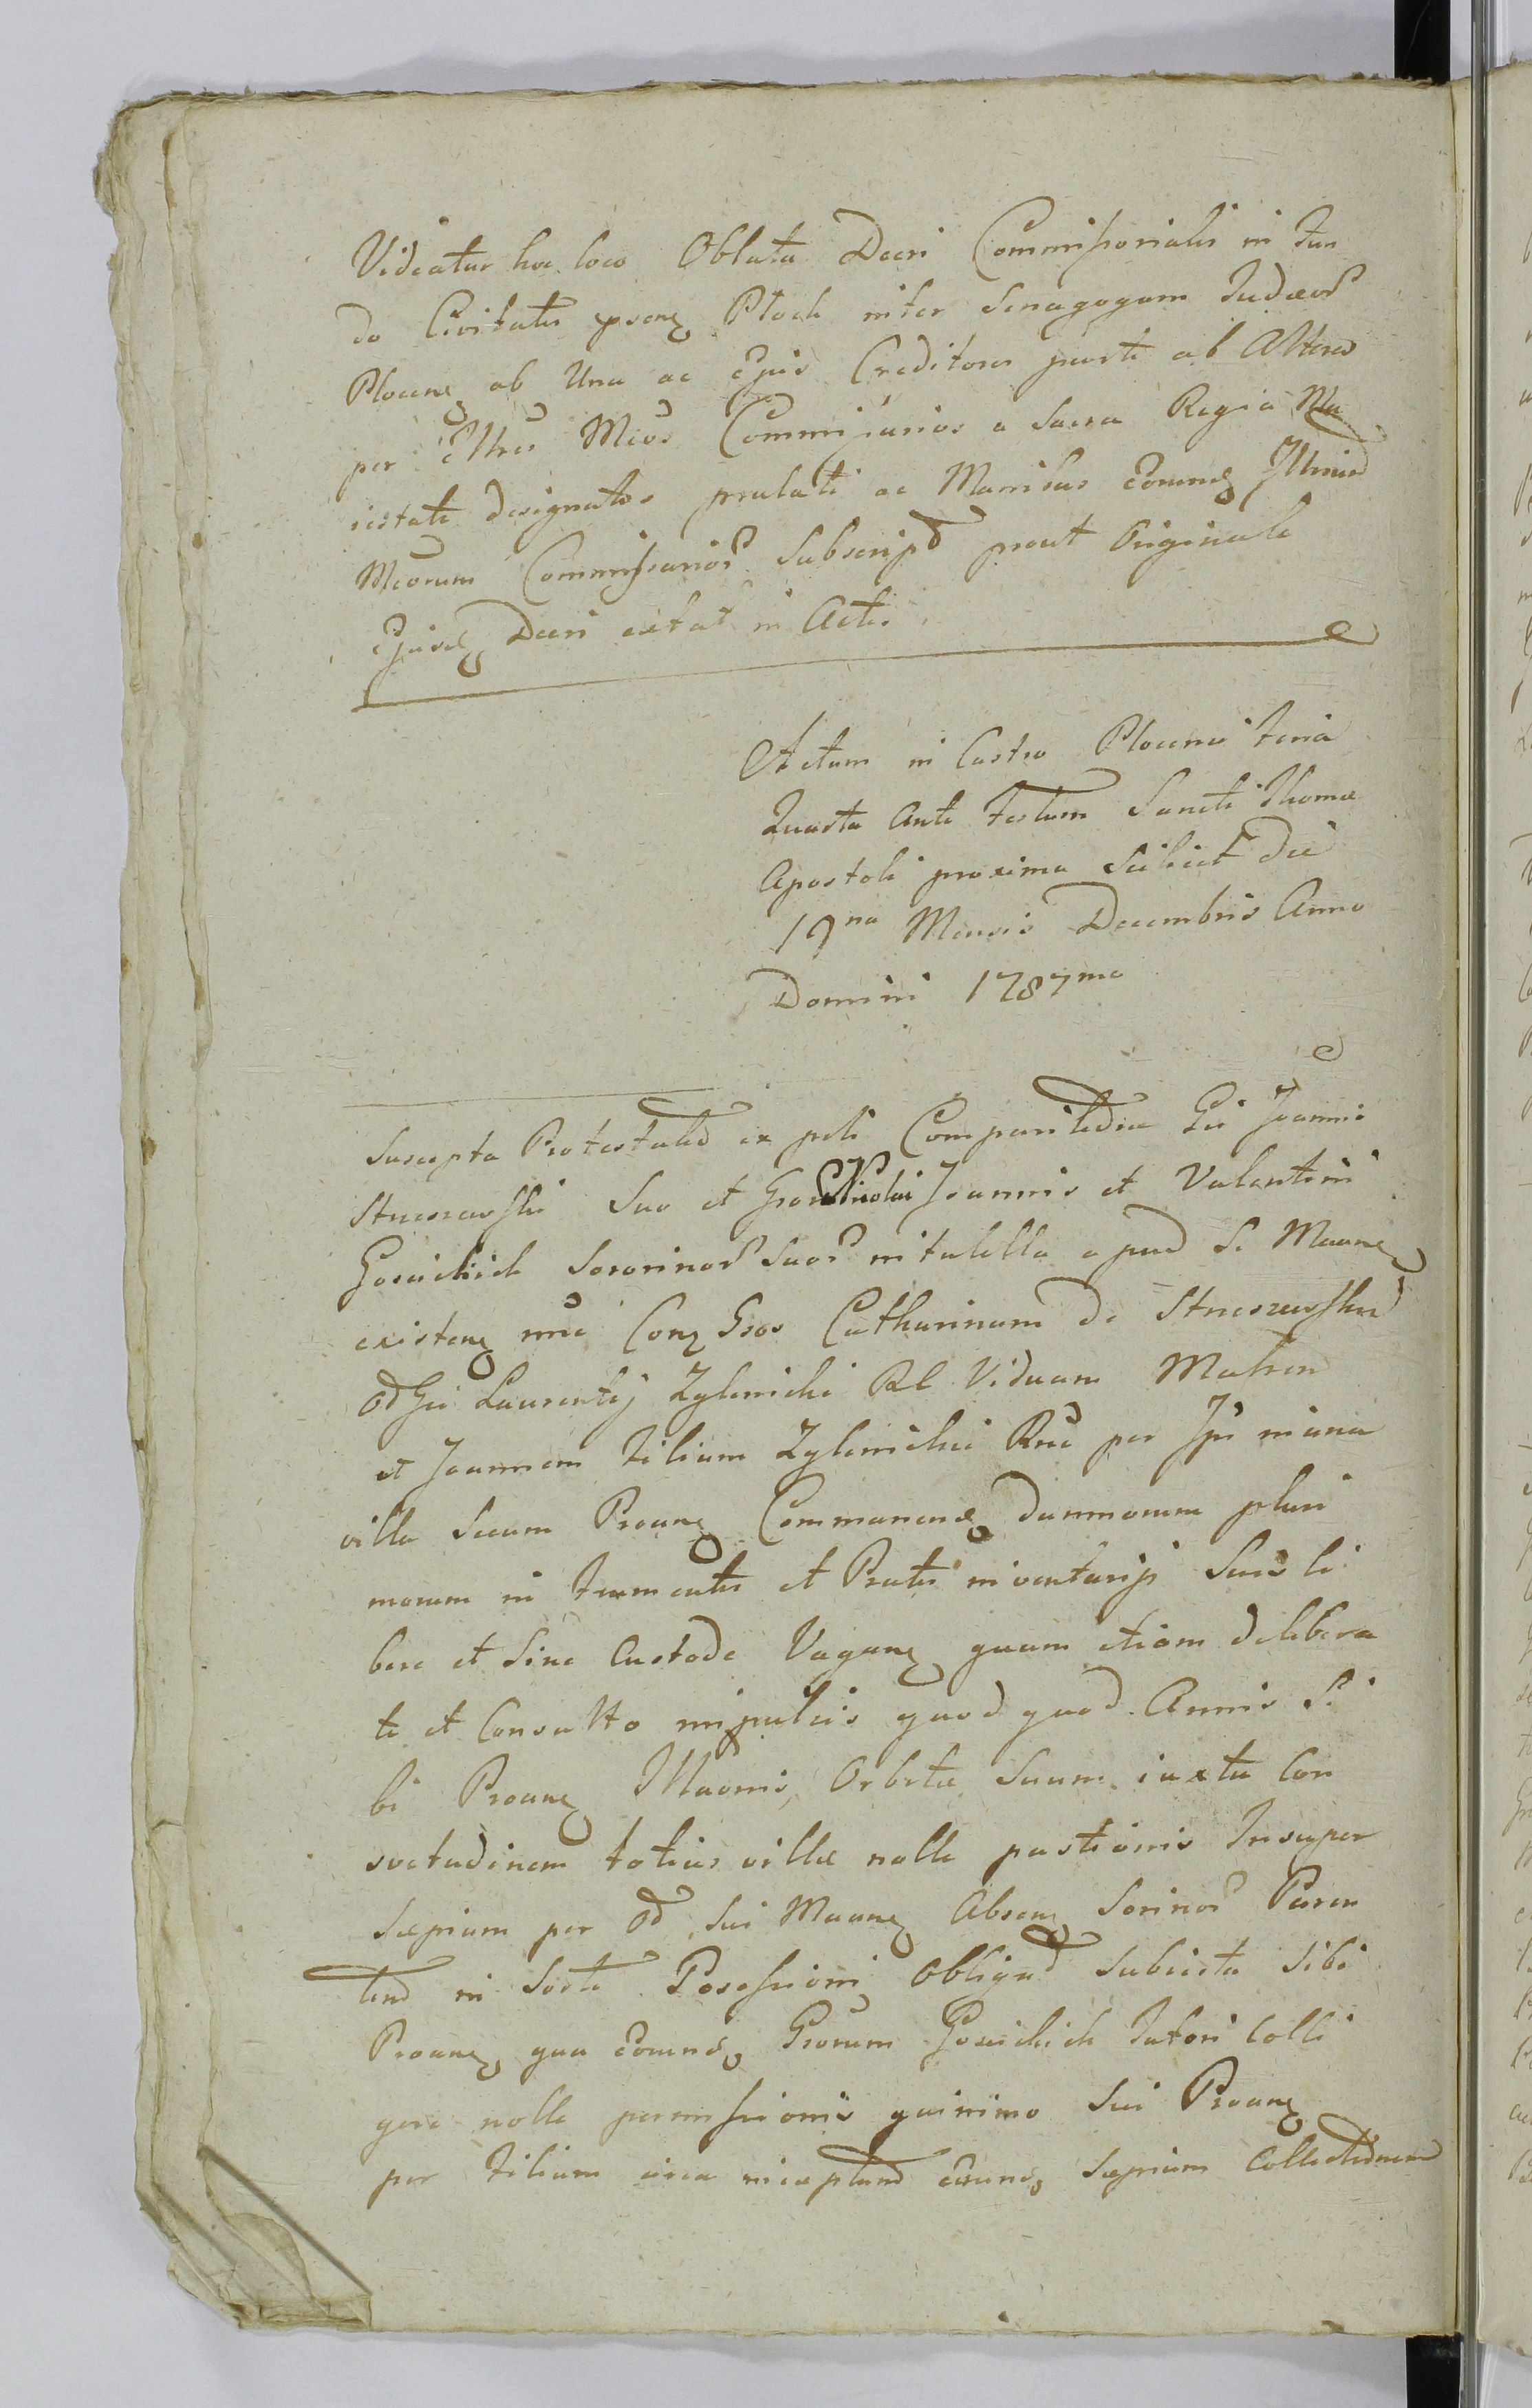 Videatur hoc loco Oblata Decri Commissorialis in Fun
do Civitatis Ptock inter Senagogam Judæor
Plocens ab Una ac Ejus Creditores parte ab Altera
per Illres Mcos Commissarios a Sacra Regia Ma
iestate designatos prolati ac Manibus eorund Illrium
Mcorum Commissarior Subscript prout Originale
Ejusd Decri extat in Actis
Actum in Castro Plocensi Feria
Quarta Ante Festum Sancti Thomæ
Apostoli proxima Scilicet die
19na Mensis Decembris Anno
Domini 1787mo
Suscepta Protestatio ex Gsi Joannis
Strueszewski Suo et Gsor Nicolai Joannis et Valentini
Gosickich Sororinor Suor in tutella apud Se Maan
existen Con Gsos Catharinam de Strueszewskie
od Gsi Laurentij Zglenicki Rl Viduam Matrem
et Joannem Filium Zglenickie per in una
villa Secum Proan Commanend damnorum pluri
morum in Frumentis et Pratis inventarijs Suis li
bere et Sine Custode Vagan quam etiam delibera
te et Consulto impulsis quod quod Annis Si
bi Proan Orbita Suum iuxta Con
svetudinem totius villæ nolle pastionis Insuper
Sæpium per od Sui Maan Absen Sorinor Paren
tum in Sorte Possessioni Obligat Subiecta Sibi
Proan qua eorund Gsorum Gosickich Tutori Colli
gere nolle permissionis quinimo Sui Proan
per Filium circa inceptam earund Sæpium Collectionem